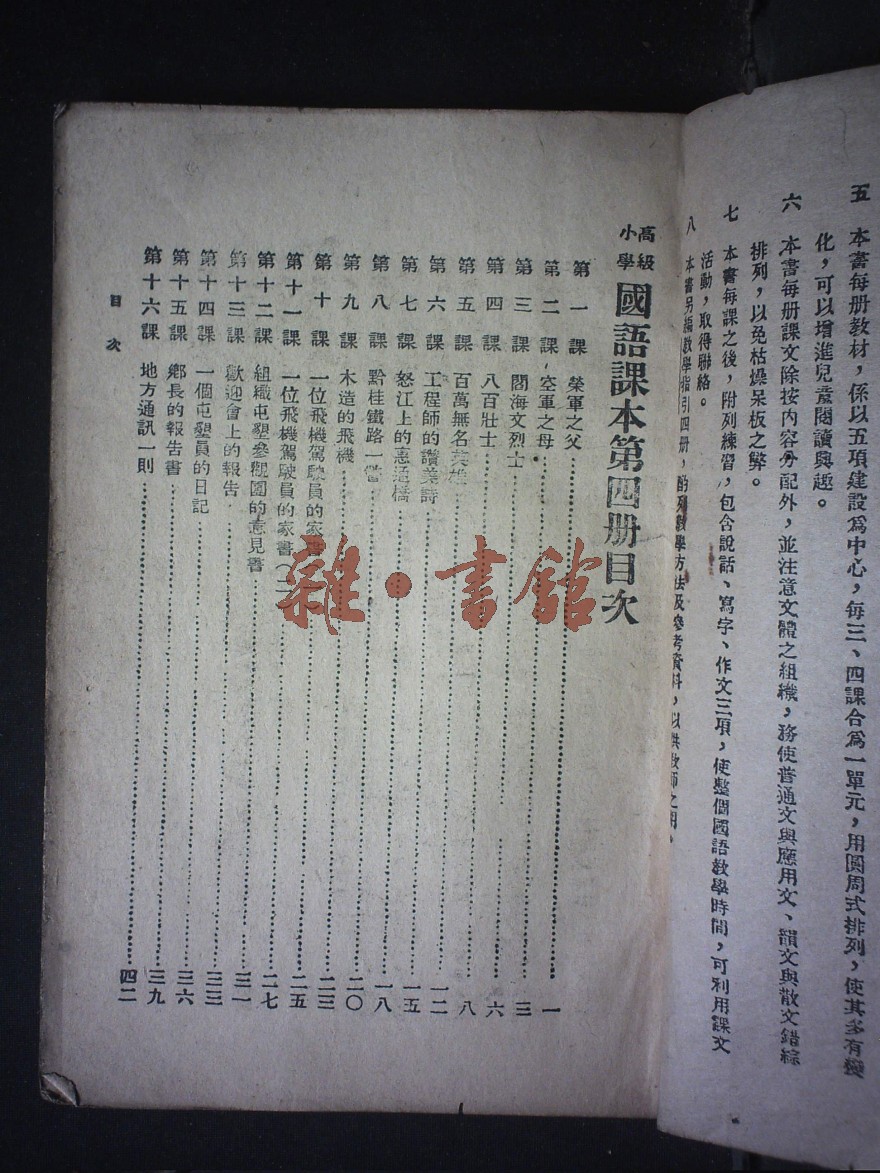 五　本書每册教材，係以五項建設爲中心，每三、四課合爲一單元，用圓周式排列，使其多有變
化，可以增進兒童閱讀興趣。
六　本書每册課文除按內容分配外，並注意文體之組織，務使普通文與應用文、韻文與散文錯綜
排列，以免枯燥呆板之弊。
七　本書每課之後，附列練習，包含說話、寫字、作文三項，使整個國語教學時間，可利用課文
活動，取得聯絡。
八　本書另編教學指引四册，酌列教學方法及參考資料，以供教師之用。
高級小學　國語課本第四册目次
第一課　榮軍之父……一
第二課　空軍之母……三
第三課　閻海文烈士……六
第四課　八百壯士……八
第五課　百萬無名英雄……一二
第六課　工程師的讚美詩……一五
第七課　怒江上的惠通橋……一八
第八課　黔桂鐵路一瞥……二〇
第九課　木造的飛機……二三
第十課　一位飛機駕駛員的家書……二五
第十一課　一位飛機駕駛員的家書（二）……二七
第十二課　組織屯墾參觀團的意見書……三一
第十三課　歡迎會上的報告……三三
第十四課　一個屯墾員的日記……三六
第十五課　鄉長的報告書……三九
第十六課　地方通訊一則……四二
目次
雜·書館